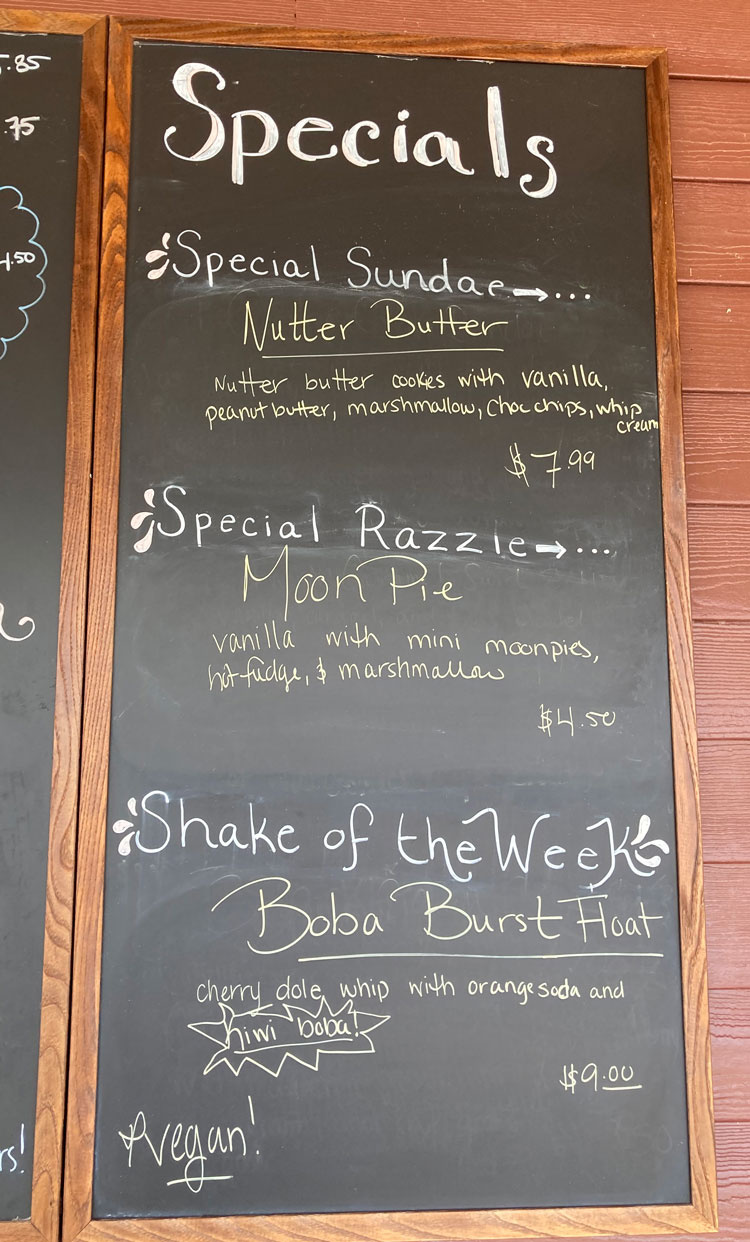 5.85
.75
4.50
rs!
Specials
Special Sundae → ...
Nutter Butter
Nutter butter cookies with vanilla,
peanut butter, marshmallow, Choc chips, whip
cream
$7.99
Special Razzle → ...
Moon Pie
vanilla with mini moonpies,
hot fudge, & marshmallow
$4.50
Shake of the Week
Boba Burst Float
cherry dole whip with orange soda and
kiwi boba!
$9.00
Vegan!